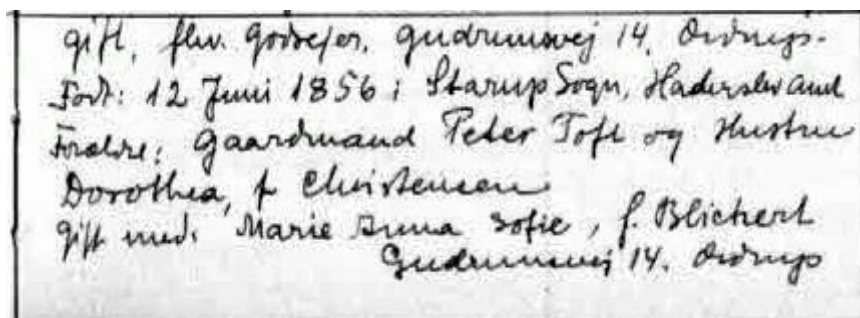 gift, fhv. Godsejer, Gudrunsvej 14, Ordrup.
Født: 12 Juni 1856 i Starup Sogn, Haderslev Amt
Forældre: Gaardmand Peter Toft og Hustru
Dorothea, f. Christensen
gift med: Marie Anna Sofie, f. Blichert
Gudrunsvej 14. Ordrup